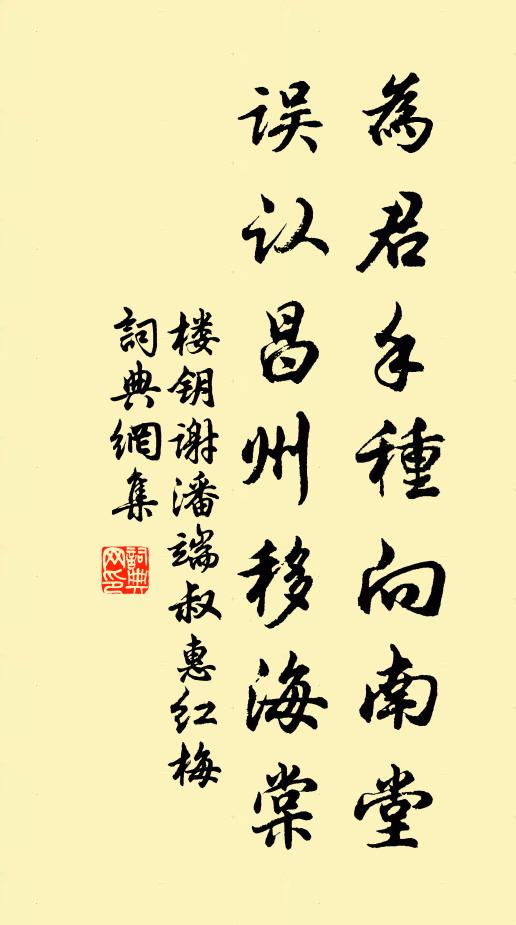 為君手種向南堂
误认昌州移海棠
楼钥谢潘端叔惠红梅
詞典網集
詞典网印